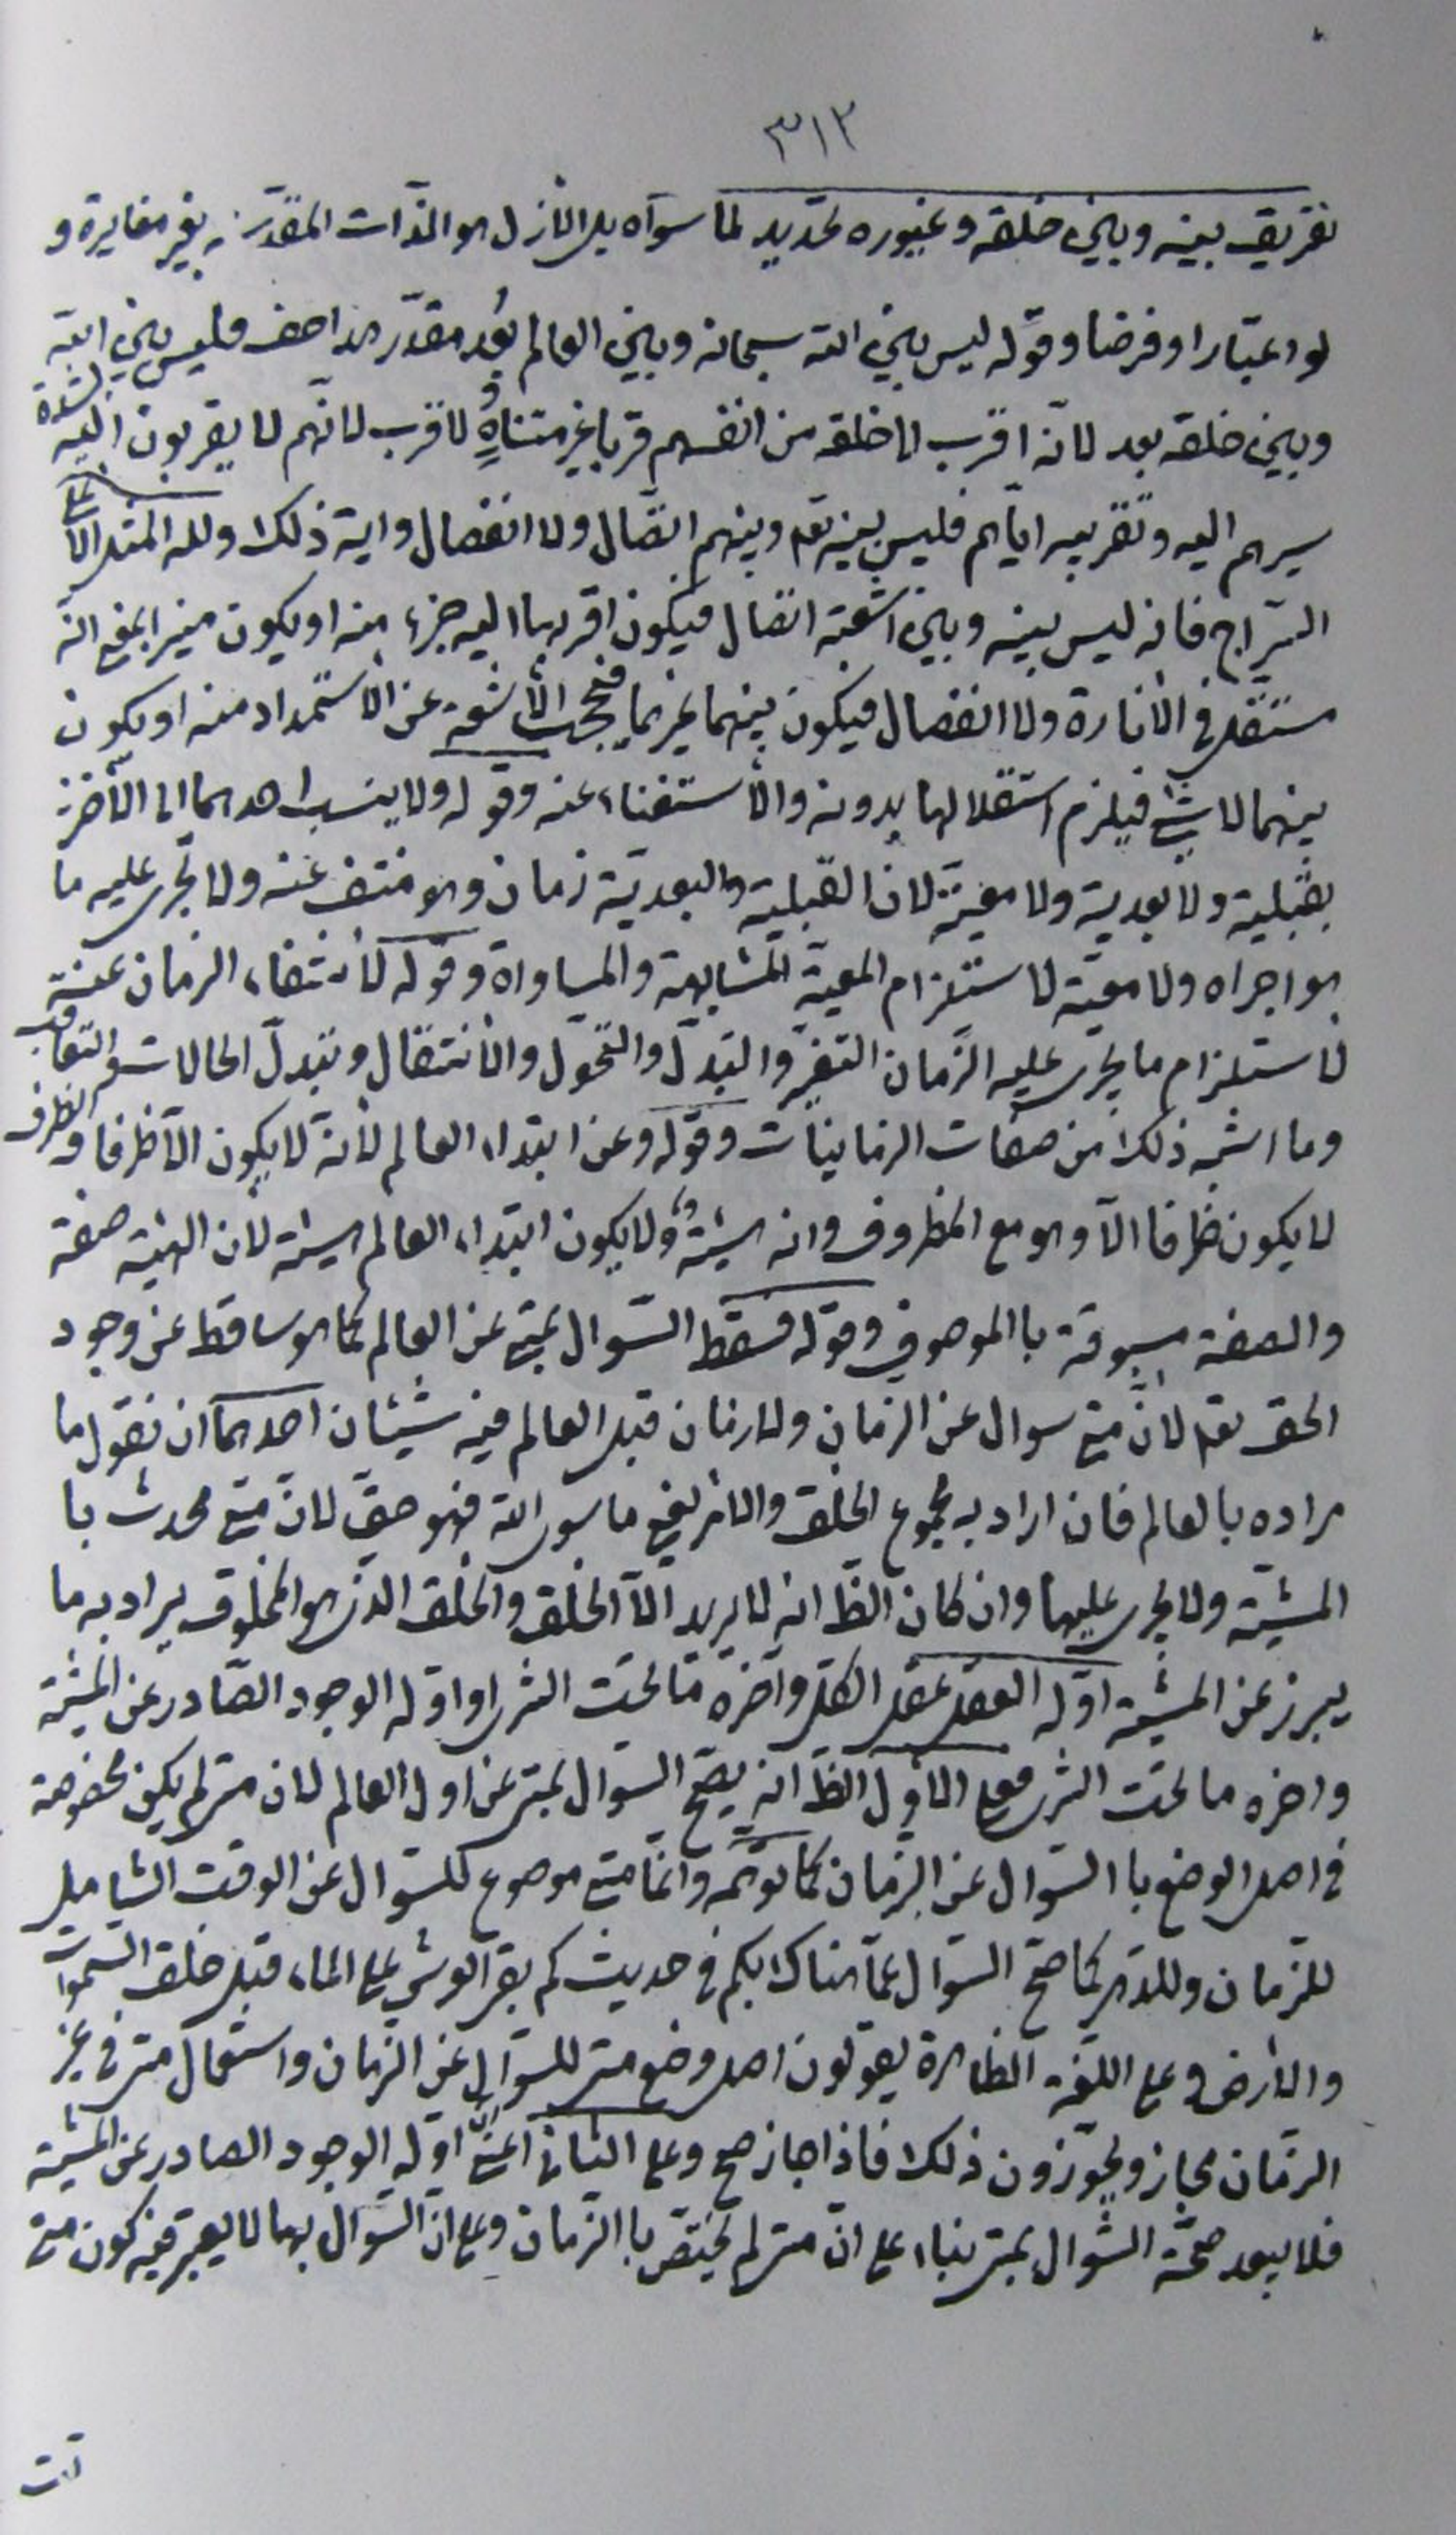 ٣١٢
تفريق بينه وبين خلقه وغيوره تحديد لما سواه بل الأزل هو الذّات المقدّسة بغير مغايرة و
لو اعتبارا وفرضا وقوله ليس بين الله سبحانه وبين العالم بُعد مقدّر الخ حق فليس بين الله
وبين خلقه بعد لانه اقرب الى خلقه من انفسهم قربا غير متناهٍ ولا قرب لانهم لا يقربون اليه لشدة
سيرهم اليه وتقريبه اياهم فليس بينه تع وبينهم اتّصال ولا انفصال واية ذلك ولله المثل الاعلى
السّراج فانه ليس بينه وبين اشعته اتصال فيكون اقربها اليه جزء منه او يكون منيرا بمعنى انه
مستقل في الأنارة ولا انفصال فيكون بينهما غيرهما فيحجب الأشعة عن الأستمداد منه او يكون
بينهما لا شئ فيلزم استقلالها بدونه والأستغناء عنه وقوله ولا ينسب احدهما الى الأخر
بقبلية ولا بعدية ولا معية لان القبلية والبعدية زمان وهو منتف عنه ولا تجرى عليه ما
هو اجراه ولا معية لاستلزام المعية المشابهة والمساواة وقوله لأنتفاء الزمان عنه
لاستلزام ما يجرى عليه الزّمان التغيّر والتبدّل والتحوّل والأنتقال وتبدّل الحالات والتعاقب
وما اشبه ذلك من صفات الزمانيات وقوله وعن ابتداء العالم لأنه لا يكون الا ظرفا والظرف
لا يكون ظرفا الّا وهو مع المظروف وانه هيئة ولا يكون ابتداء العالم هيئة لأن الهيئة صفة
والصفة مسبوقة با الموصوف وقوله فسقط السّوال بمتى عن العالم كما هو ساقط عن وجود
الحق تع لانّ متى سوال عن الزمان ولا زمان قبل العالم فيه شيئان احدهما ان نقول ما
مراده بالعالم فان اراد به مجموع الخلق والامر يعنى ما سوى الله فهو حق لان متى محدث با
المشيّة ولا يجرى عليها وان كان الظ انه لا يريد الّا الخلق والخلق الذى هو المخلوق يراد به ما
يبرز عن المشية اوّله العقل عقل الكل واخره ما تحت الثرى او اوّله الوجود الصّادر عن المشية
واخره ما تحت الثرى فعلى الاول الظ انه يصحّ السوال بمتى عن اول العالم لان متى لم يكن مخصوصة
فى اصل الوضع با السّوال عن الزمان كما توهّم وانما متى موضوع للسّوال عن الوقت الشامل
للزمان وللدّهر كما صحّ السّوال عمّا هناك بكم فى حديث كم بقى العرش على الماء قبل خلق السّموات
والأرض وعلى اللغة الظاهرة يقولون اصل وضع متى للسّوال عن الزمان واستعمال متى فى غير
الزّمان مجاز ويجوّزون ذلك فاذا جاز صح وعلى الثانى اعنى انّ اوّله الوجود الصادر عن المشية
فلا يبعد صحّة السّوال بمتى بناء على انّ متى لم يختصّ با الزّمان وعلى انّ السّوال بها لا يعتبر فيه كون متى